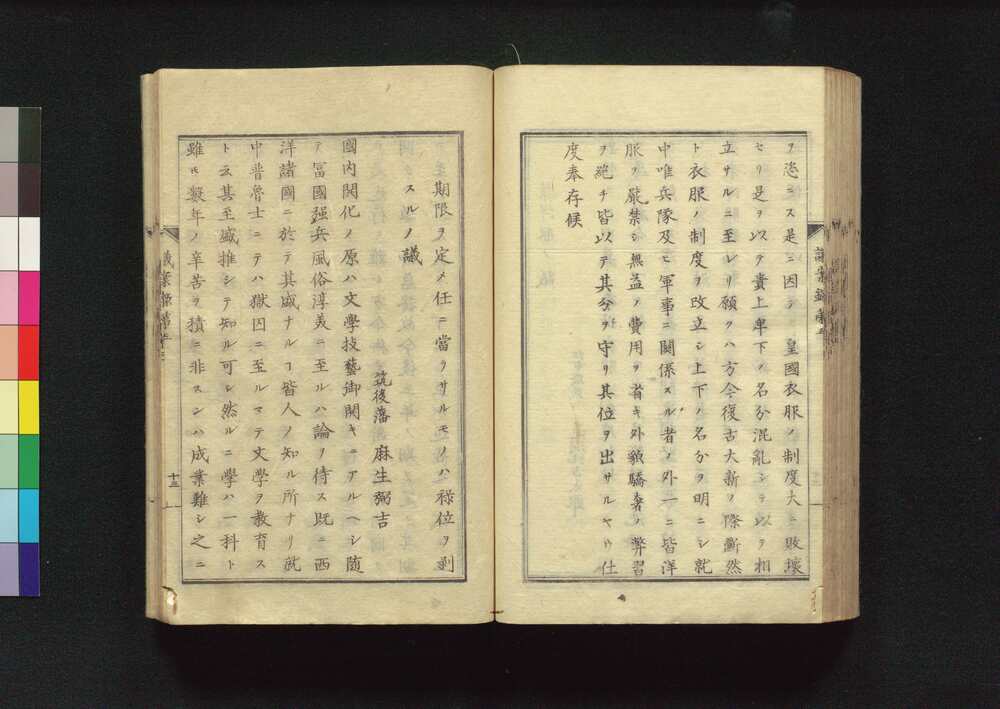 ヲ恣ニス是ニ因テ　皇國衣服ノ制度大ニ敗壞
セリ是ヲ以テ貴上卑下ノ名分混亂シテ以テ相
立サルニ至レリ願クハ方今復古大新ノ際斷然
ト衣服ノ制度ヲ改立シ上下ノ名分ヲ明ニシ就
中唯兵隊及ヒ軍事ニ關係スル者ノ外一ニ皆洋
服ヲ嚴禁シ無益ノ費用ヲ省キ外貌驕奢ノ弊習
ヲ絶チ皆以テ其分ヲ守リ其位ヲ出サルヤウ仕
度奉存候
期限ヲ定メ任ニ當ラサルモノハ祿位ヲ剥
スルノ議
筑後藩　麻生弼吉
國内開化ノ原ハ文學技藝御開キニアルヘシ随
テ冨國强兵風俗淳美ニ至ルハ論ヲ待ス既ニ西
洋諸國ニ於テ其盛ナルヿ皆人ノ知ル所ナリ就
中普魯士ニテハ獄囚ニ至ルマテ文學ヲ教育ス
ト云其至盛推シテ知ル可シ然ルニ學ハ一科ト
雖𪜈數年ノ辛苦ヲ積ニ非スンハ成業難シ之ニ
十三